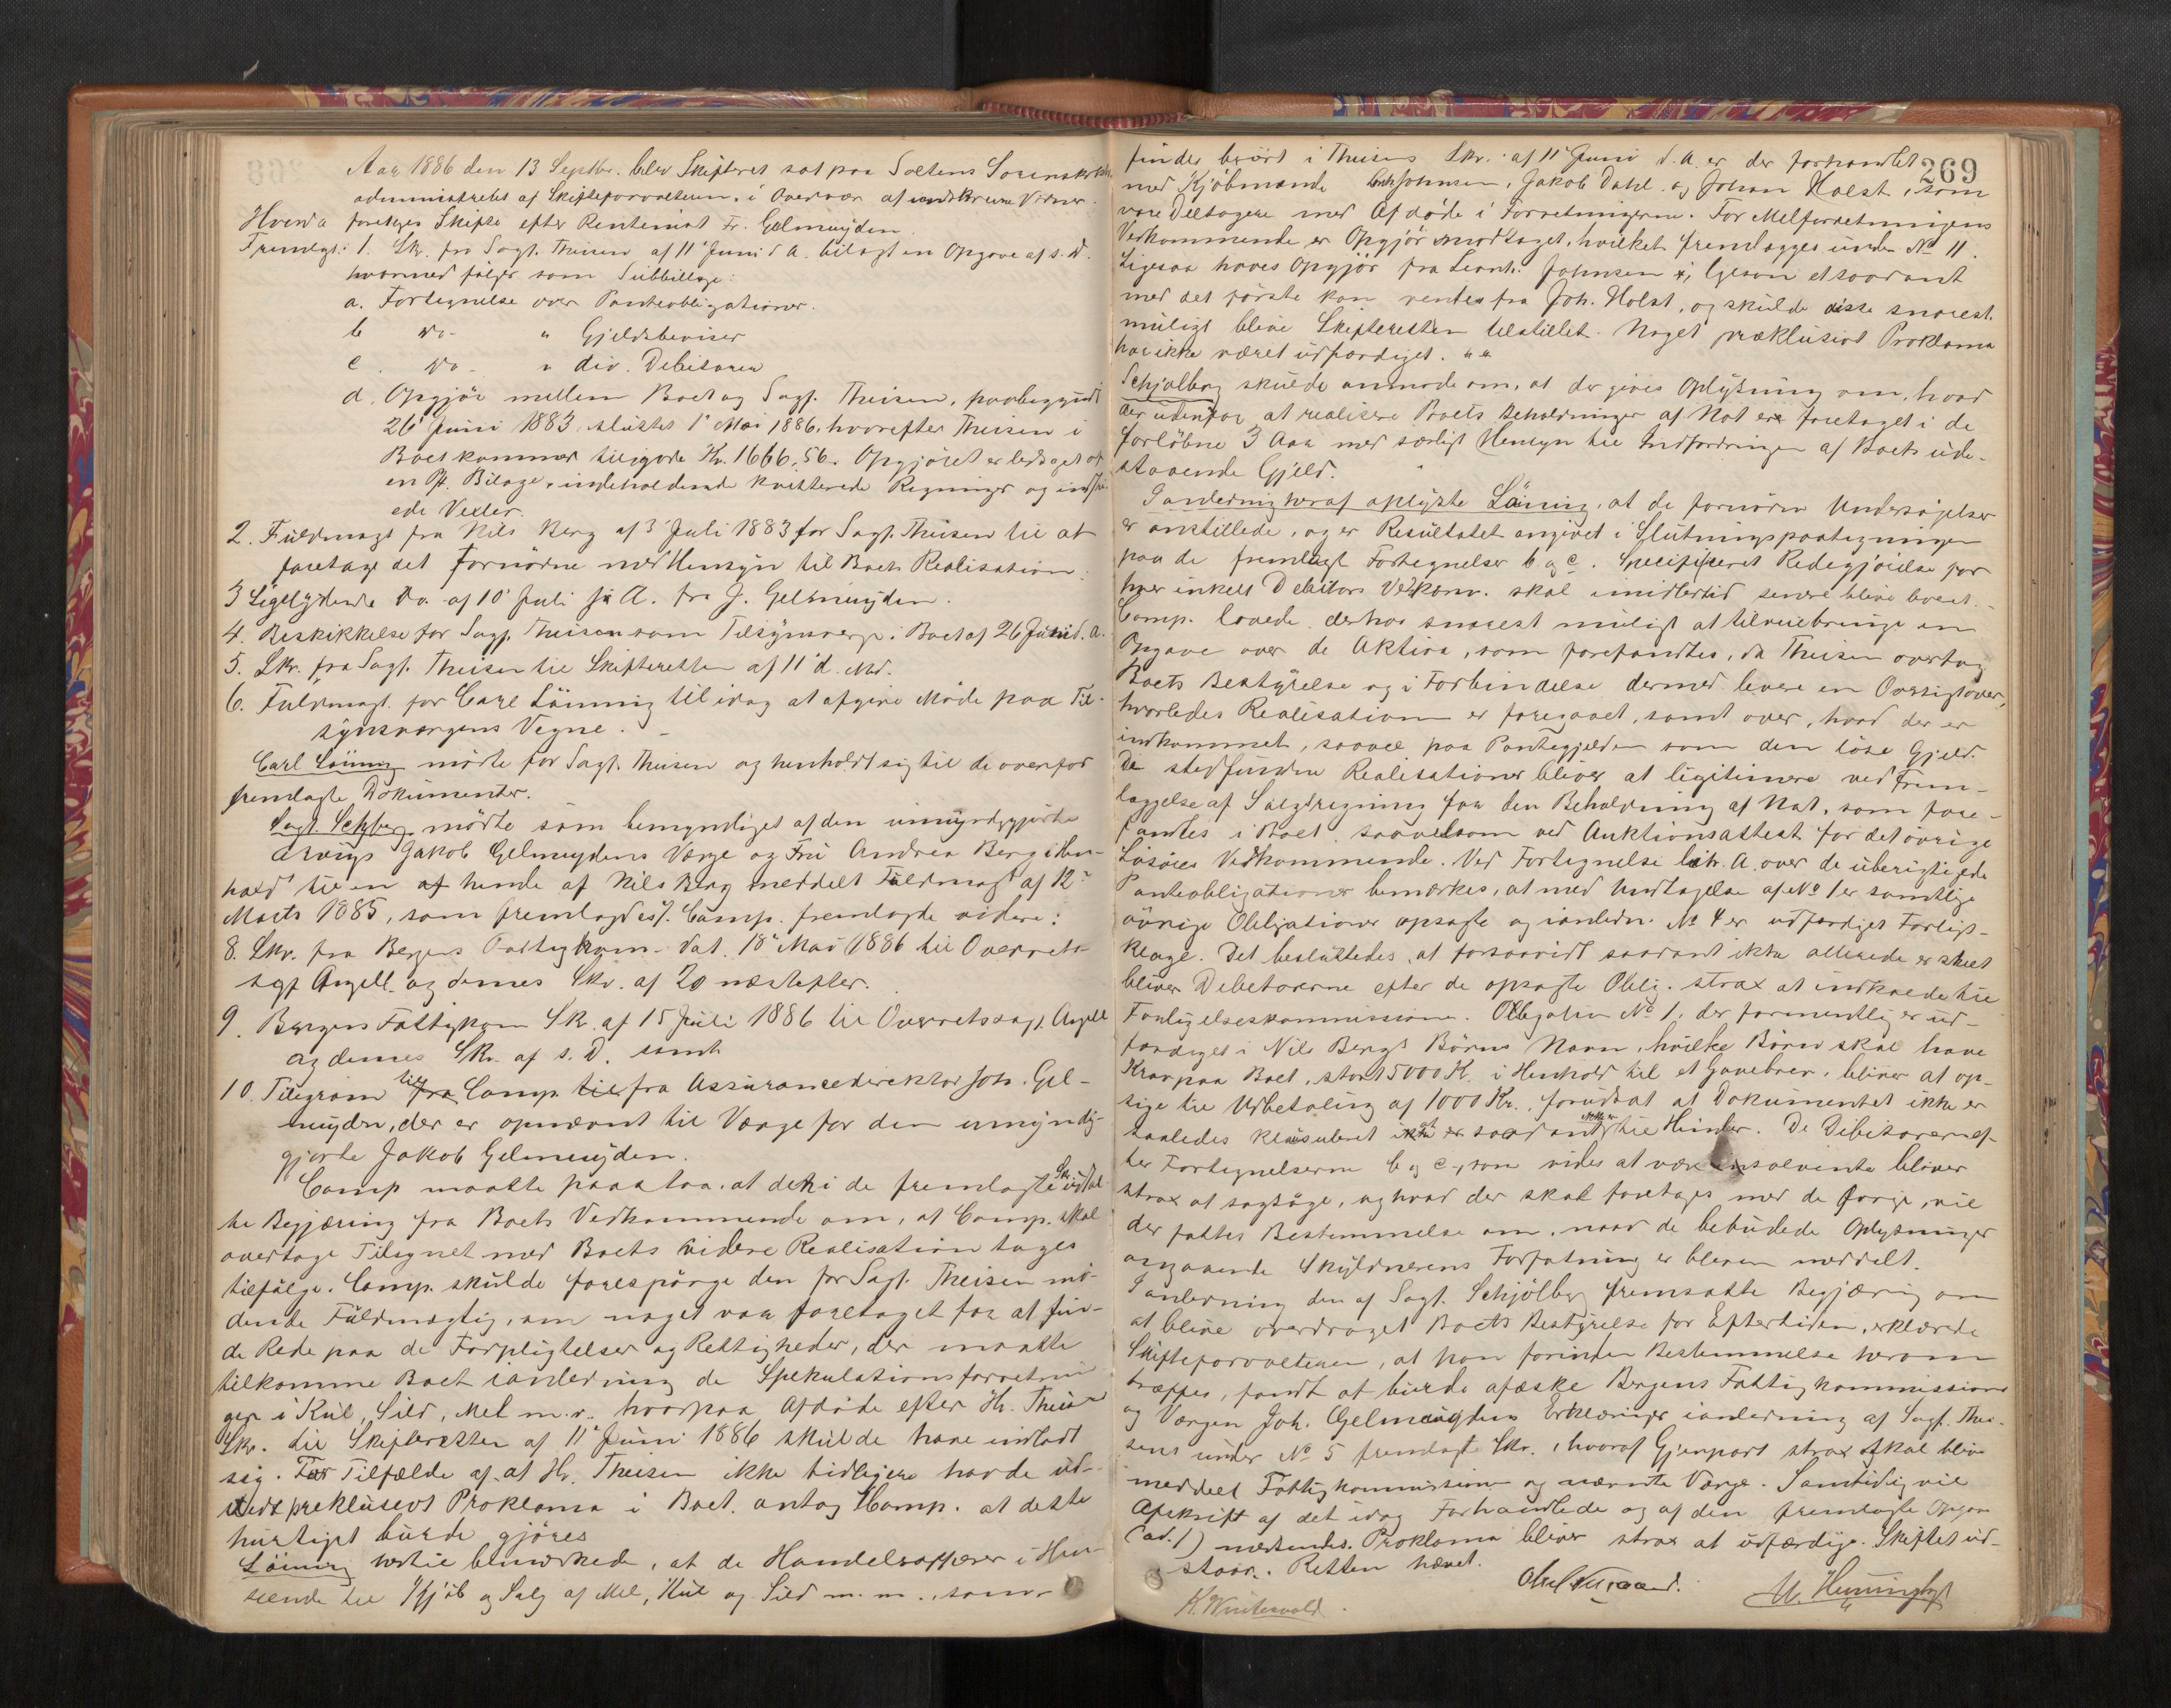 Aar 1886 den 13 Septbr. blev Skifteret sat paa Saltens Sorenskr.
administreret af Skifteforvalteren, i Overvær af undskrevne Vidner.
Hvorda foretoges Skifte efter Rentenist Fr. Gelmuyden.
Fremlagt: 1. Skr. fra Sagf. Theisen af 11' Juni d. A. bilagt en Opgave af s. D.
hvormed følger som Subbillage:
a. Fortegnelse over Panteobligationer.
b do- " Gjeldsbeviser
c. do- " div. Debitorer
d. Opgjör mellem Boet og Sagf. Theisen, paabegyndt
26' Juni 1883, sluttet 1' Mai 1886, hvorefter Theisen i
Boet kommer tilgode Kr. 1666,56. Opgjöret er ledsaget af
en Pk. Bilage, indeholdende kvitterede Regninger og indfri-
ede Vexler.
2. Fuldmagt fra Nils Berg af 3' Juli 1883 for Sagf. Theisen til at
foretage det fornødne med Hensyn til Boets Realisation.
3 Ligelydende Do. af 10' Juli s. A. fra J. Gelmuyden.
4. Beskikkelse for Sagf. Theisen som Tilsynsverge i Boet af 26 Juni d. A.
5. Skr. fra Sagf. Theisen til Skifteretten af 11' d. Md.
6. Fuldmagt for Carl Lönning til idag at afgive Møde paa Til-
synsvergens Vegne. -
Carl Lönning mödte for Sagf. Theisen og henholdt sig til de ovenfor
fremlagte Dokumenter.
Sagf. Schjberg mödte som bemyndiget af den umyndiggjorte
arvings Jakob Gelmuydens Værge og Fru Andrea Berg i Hen-
hold til en af hende af Nils Berg meddelt Fuldmagt af 12'
Marts 1885, som fremlagdes 7. Comp. fremlagde videre:
8. Skr. fra Bergens Fattigkom. dat. 18' Mai 1886 til Overrets-
sagf Angell og dennes Skr. af 20 næstefter.
9. Bergens Fattigkom Skr. af 15 Juli 1886 til Overretssagf. Angell
og dennes Skr. af s. D. samt
10. Telegram til Comp. fra Assurancedirektør Joh. Gel-
muyden, der er opnævnt til Værge for den umyndig-
gjorte Jakob Gelmuyden.
Comp maatte paastaa, at den i de fremlagte Skr. udtal-
te Begjæring fra Boets Vedkommende om, at Comp. skal
overtage Tilsynet med Boets videre Realisation tages
tilfølge. Comp. skulde forespørge den for Sagf. Theisen mö-
dende Fuldmægtig, om noget var foretaget for at fin-
de Rede paa de Forpligtelser og Rettigheder, der maatte
tilkomme Boet i anledning de Spekulationsforretnin-
ger i Kul, Sild, Mel m. v. hvorpaa Afdöde efter Hr. Theisens
Skr. til Skifteretten af 11' Juni 1886 skulde have indladt
sig. For Tilfælde af at Hr. Theisen ikke tidligere havde ud-
stedt preklusivt Proklama i Boet, antog Comp. at dette
hurtigst burde gjöres
Lönning hertil bemærkede, at de Handelsaffærer i Hen-
seende til Kjöb og Salg af Mel, Kul og Sild m. m., som
269
findes berört i Theisens Skr. af 11' Juni d. A. er der forhandlet
med Kjöbmænde Johnsen, Jakob Dahl og Johan Holst, som
vare Deltagere med Afdöde i Forretningerne. For Melforretningens
Vedkommende er Opgjör modtaget, hvilket fremlægges under No 11.
Ligesaa haves Opgjör fra Johnsen, ligesom et saadant
med det förste kan ventes fra Joh. Holst, og skulde disse snarest
muligt blive Skifteretten tilstillet. Noget præklusivt Proklama
har ikke været udfærdiget. "
Schjølberg skulde anmode om, at der gives Oplysning om, hvad
der udenfor at realisere Boets Beholdninger af Not er foretaget i de
forløbne 3 Aar med særligt Hensyn til Indfordringen af Boets ude-
staaende Gjeld.
I anledning heraf oplyste Lönning, at de fornødne Undersøgelser
er anstillede, og er Resultatet angivet i Slutningspaategningen
paa de fremlagte Fortegnelser b og c. Specificeret Redegjörelse for
hver enkelt Debitors Vedkom. skal imidlertid senere blive leveret.
Comp. lovede derhos snarest muligt at tilveiebringe en
Opgave over de Aktiva, som forefandtes, da Theisen overtog
Boets Bestyrelse og i Forbindelse dermed levere en Oversigt over,
hvorledes Realisationen er foregaaet, samt over, hvad der er
indkommet, saavel paa Pantegjelden som den löse Gjeld.
De stedfundne Realisationer bliver at legitimere ved Frem-
læggelse af Salgsregning for den Beholdning af Not, som fore-
fandtes i Boet saavelsom ved Auktionsattest for det övrige
Lösöres Vedkommende. Ved Fortegnelse litr. A. over de uberigtigede
Panteobligationer bemærkes, at med Undtagelse af No 1 er samtlige
övrige Obligationer opsagte og i anledn. No 4 er udfærdiget Forligs-
klage. Det besluttedes, at forsaavidt saadant ikke allerede er skeet
bliver Debitorerne efter de opsagte Oblig. strax at indkalde til
Forligelseskommissionen. Obligation No 1, der formentlig er ud-
færdiget i Nils Bergs Börns Navn, hvilke Börn skal have
Krav paa Boet, stort 5000 K. i Henhold til et Gavebrev, bliver at op-
sige til Udbetaling af 1000 Kr., forudsat at Dokumentet ikke er
saaledes klausuleret at saadant er til Hinder. De Debitorer ef-
ter Fortegnelserne b og c, som vides at være insolvente bliver
strax at sagsöge, og hvad der skal foretages med de övrige, vil
der fattes Bestemmelse om, naar de bebudede Oplysninger
angaaende Skyldnerens Forfatning er bleven meddelt.
I anledning den af Sagf. Schjölberg fremsatte Begjæring om
at blive overdraget Boets Bestyrelse for Eftertiden, erklærede
Skifteforvalteren, at han forinden Bestemmelse herom
træffes, fandt at burde afæske Bergens Fattigkommission
og Værgen Joh. Gelmuydens Erklæringer i anledning af Sagf. Thei-
sens under No 5 fremlagte Skr., hvoraf Gjenpart strax skal blive
meddeelt Fattigkommissionen og nævnte Værge. Samtidig vil
Afskrift af det idag Forhandlede og af den fremlagte Opgave
(ad. 1) medsendes. Proklama bliver strax at udfærdige. Skiftet ud-
staar. Retten hævet.
K. Wintervold.